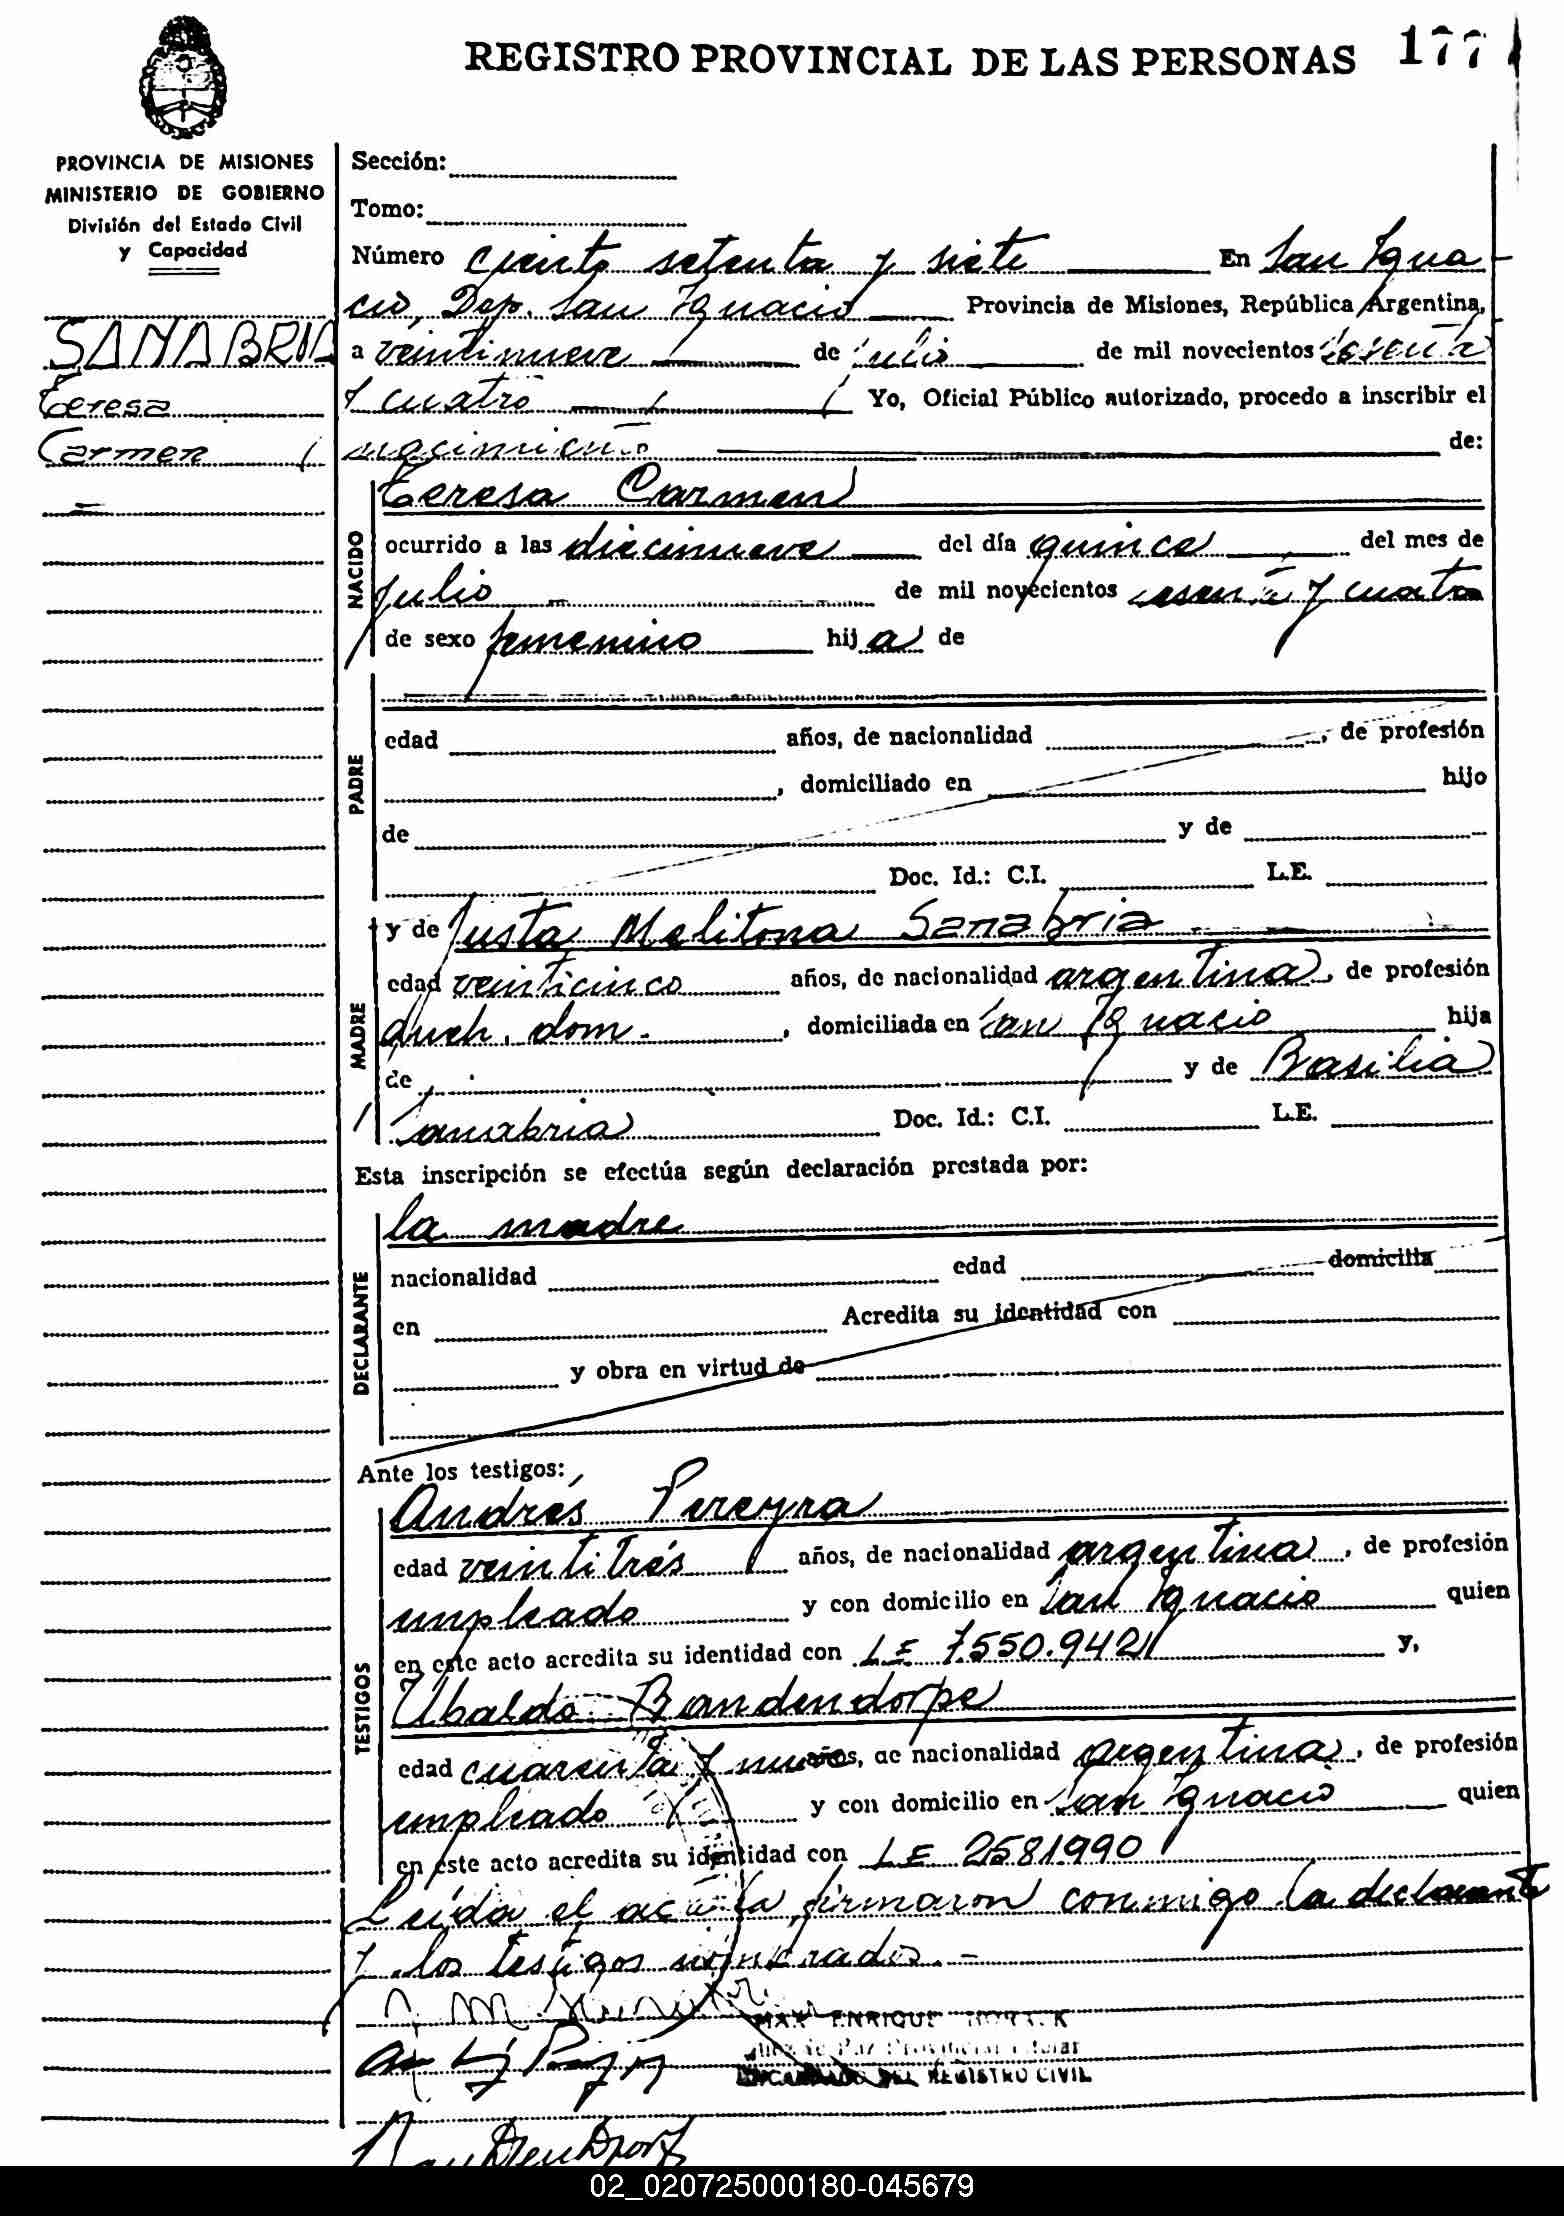 REGISTRO PROVINCIAL DE LAS PERSONAS 177
PROVINCIA DE MISIONES
MINISTERIO DE GOBIERNO
División del Estado Civil
y Capacidad
SANABRIA
Teresa
Carmen
Sección:
Tomo:
Número ciento setenta y siete En San Igna
cio, Dep. San Ignacio Provincia de Misiones, República Argentina,
a veintinueve de julio de mil novecientos sesenta
y cuatro Yo, Oficial Público autorizado, procedo a inscribir el
nacimiento de:
NACIDO
Teresa Carmen
ocurrido a las diecinueve del día quince del mes de
julio de mil novecientos sesenta y cuatro
de sexo femenino hij a de
PADRE
edad años, de nacionalidad , de profesión
, domiciliado en hijo
de y de
Doc. Id.: C.I. L.E.
MADRE
y de Justa Melitona Sanabria
edad veinticinco años, de nacionalidad argentina, de profesión
queh. dom. , domiciliada en San Ignacio hija
de y de Basilia
Sanabria Doc. Id.: C.I. L.E.
Esta inscripción se efectúa según declaración prestada por:
DECLARANTE
la madre
nacionalidad edad domicilia
en Acredita su identidad con
y obra en virtud de
Ante los testigos:
TESTIGOS
Andrés Pereyra
edad veintitrés años, de nacionalidad argentina, de profesión
empleado y con domicilio en San Ignacio quien
en este acto acredita su identidad con LE 7.550.942 y,
Ubaldo Brandendorpe
edad cuarenta y nueve años, de nacionalidad argentina, de profesión
empleado y con domicilio en San Ignacio quien
en este acto acredita su identidad con LE 2581990
Leída el acta la firmaron conmigo la declarante
y los testigos nombrados.-
MAX ENRIQUE
Juez de Paz Provincial Titular
ENCARGADO DEL REGISTRO CIVIL
02_020725000180-045679